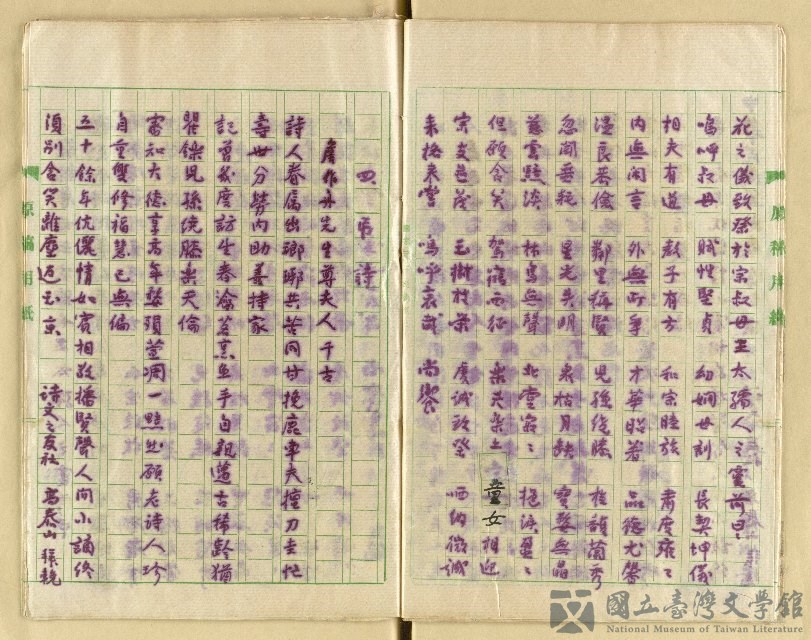 花之儀致祭於宗叔母王太孺人之靈前曰：
嗚呼叔母　賦性堅貞　幼嫻母訓　長契坤儀
相夫有道　教子有方　和宗睦族　肅雍雍
內無閒言　外無所爭　才華昭著　品德尤馨
溫良恭儉　鄰里稱賢　兒孫繞膝　桂馥蘭秀
忽聞垂耗　星光失明　月缺　寶婺無晶
慈雲黯淡　林烏無聲
但願含笑　駕鶴西征　樂哉樂土　童女相迎
宗支茂　玉樹欣榮　虔誠致祭　哂納微誠
來格來嘗　嗚呼哀哉　尚饗
四、弔詩
先生尊夫人千古
詩人眷屬出鄉共苦同甘挽鹿車夫擅刀圭忙
壽世分勞內助善持家
記曾幾度訪生春瀹茗烹魚手自親邁古稀齡猶
矍鑠兒孫繞膝樂天倫
富知大德享高年婺殞萱凋一黯然願老詩人珍
自重雙修福慧已無偏
五十餘年伉儷情如賓相敬播賢聲人間小謫終
須別含笑離塵返玉京　詩文之友社　高泰山　張
原稿用紙
國立臺灣文學館
National Museum of Taiwan Literature